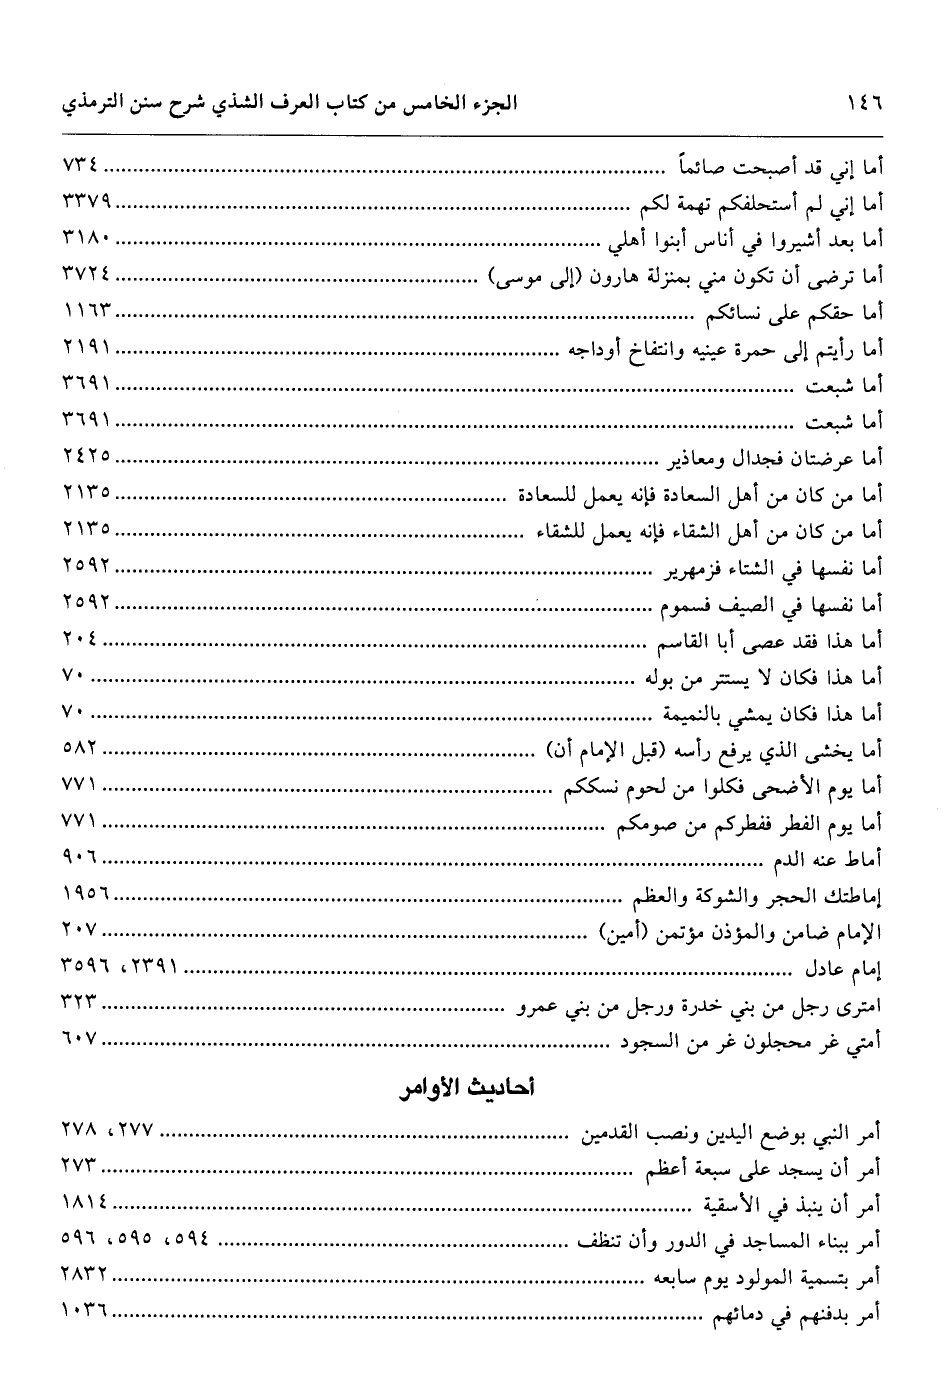 ١٤٦ الجزء الخامس من كتاب العرف الشذي شرح سنن الترمذي
أما إني قد أصبحت صائماً ........ ٧٣٤
أما إني لم أستحلفكم تهمة لكم ........ ٣٣٧٩
أما بعد أشيروا في أناس أبنوا أهلي ........ ٣١٨٠
أما ترضى أن تكون مني بمنزلة هارون (إلى موسى) ........ ٣٧٢٤
أما حقكم على نسائكم ........ ١١٦٣
أما رأيتم إلى حمرة عينيه وانتفاخ أوداجه ........ ٢١٩١
أما شبعت ........ ٣٦٩١
أما شبعت ........ ٣٦٩١
أما عرضتان فجدال ومعاذير ........ ٢٤٢٥
أما من كان من أهل السعادة فإنه يعمل للسعادة ........ ٢١٣٥
أما من كان من أهل الشقاء فإنه يعمل للشقاء ........ ٢١٣٥
أما نفسها في الشتاء فزمهرير ........ ٢٥٩٢
أما نفسها في الصيف فسموم ........ ٢٥٩٢
أما هذا فقد عصى أبا القاسم ........ ٢٠٤
أما هذا فكان لا يستتر من بوله ........ ٧٠
أما هذا فكان يمشي بالنميمة ........ ٧٠
أما يخشى الذي يرفع رأسه (قبل الإمام أن) ........ ٥٨٢
أما يوم الأضحى فكلوا من لحوم نسككم ........ ٧٧١
أما يوم الفطر ففطركم من صومكم ........ ٧٧١
أماط عنه الدم ........ ٩٠٦
إماطتك الحجر والشوكة والعظم ........ ١٩٥٦
الإمام ضامن والمؤذن مؤتمن (أمين) ........ ٢٠٧
إمام عادل ........ ٢٣٩١، ٣٥٩٦
امترى رجل من بني خدرة ورجل من بني عمرو ........ ٣٢٣
أمتي غر محجلون غر من السجود ........ ٦٠٧
أحاديث الأوامر
أمر النبي بوضع اليدين ونصب القدمين ........ ٢٧٧، ٢٧٨
أمر أن يسجد على سبعة أعظم ........ ٢٧٣
أمر أن ينبذ في الأسقية ........ ١٨١٤
أمر ببناء المساجد في الدور وأن تنظف ........ ٥٩٤، ٥٩٥، ٥٩٦
أمر بتسمية المولود يوم سابعه ........ ٢٨٣٢
أمر بدفنهم في دمائهم ........ ١٠٣٦